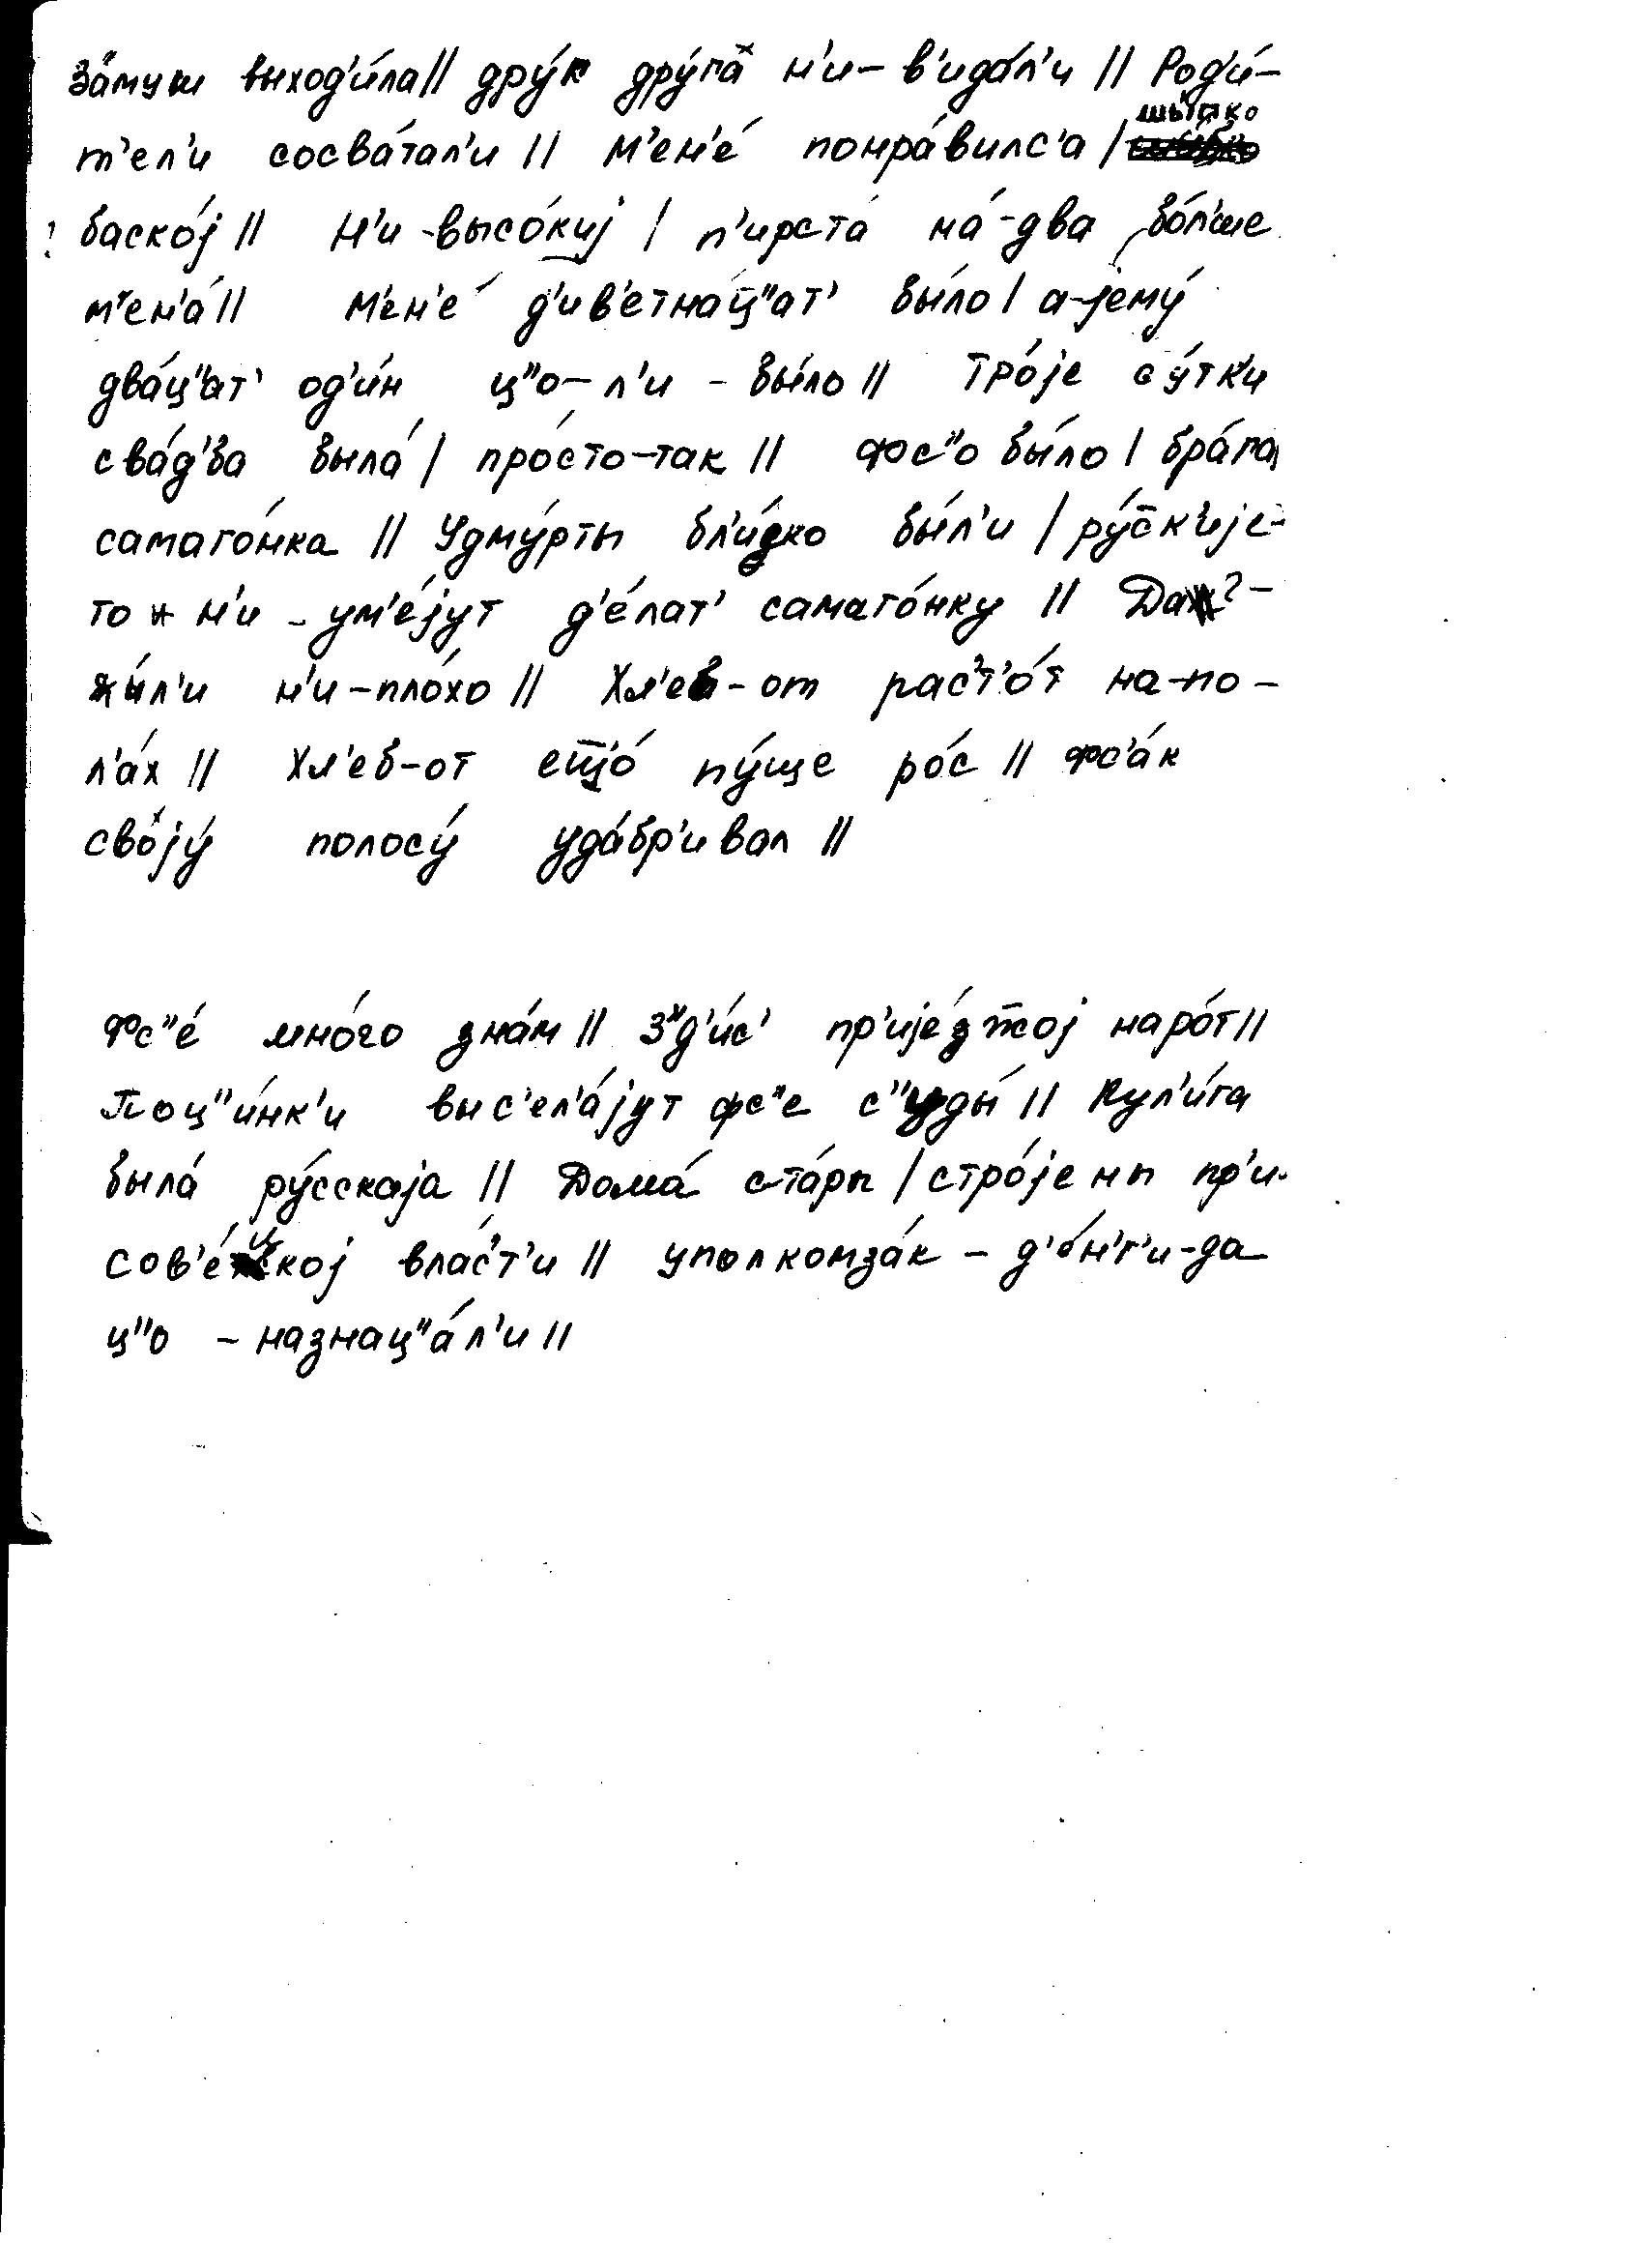 за́муш выход'и́ла || дру́к дру́га н'и-в'ида́л'и || Род'и́-
т'ел'и сосва́тал'и || М'ен'е́ понра́вилс'а | шы́пко
баско́j || Н'и-высо́киj | п'ирста́ на́-два бо́л'ше
м'ен'а́ || М'ен'е́ д'ив'етна́ц"ат' бы́ло | а-jему́
два́ц"ат' од'и́н ц"о-л'и-бы́ло || Тро́jе су́тк'и
сва́д'ба была́ | про́сто-так || Фс"о бы́ло | бра́га,
самаго́нка || Удму́рты бл'и́ско бы́л'и | ру́ск'иjе-
то н'и-ум'е́jут д'е́лат' самаго́нку || Да?-
жы́л'и н'и-пло́хо || Хл'еб-от рас'т'о́т на-по-
л'а́х || Хл'еб-от ещо́ пу́ще ро́с || Фс'а́к
своjу́ полосу́ уда́бр'ивал ||
Фс"е́ мно́го зна́м || Зд'и́с' пр'иjе́зжоj наро́т ||
Поц"и́нк'и выс'ел'а́jут фс"е с"уды́ || Кул'и́га
была́ ру́сскаjа || Дома́ ста́ры | стро́jены пр'и-
сов'е́цкоj влас'т'и || уполкомза́к - д'е́н'г'и-да
ц"о - назнац"а́л'и ||